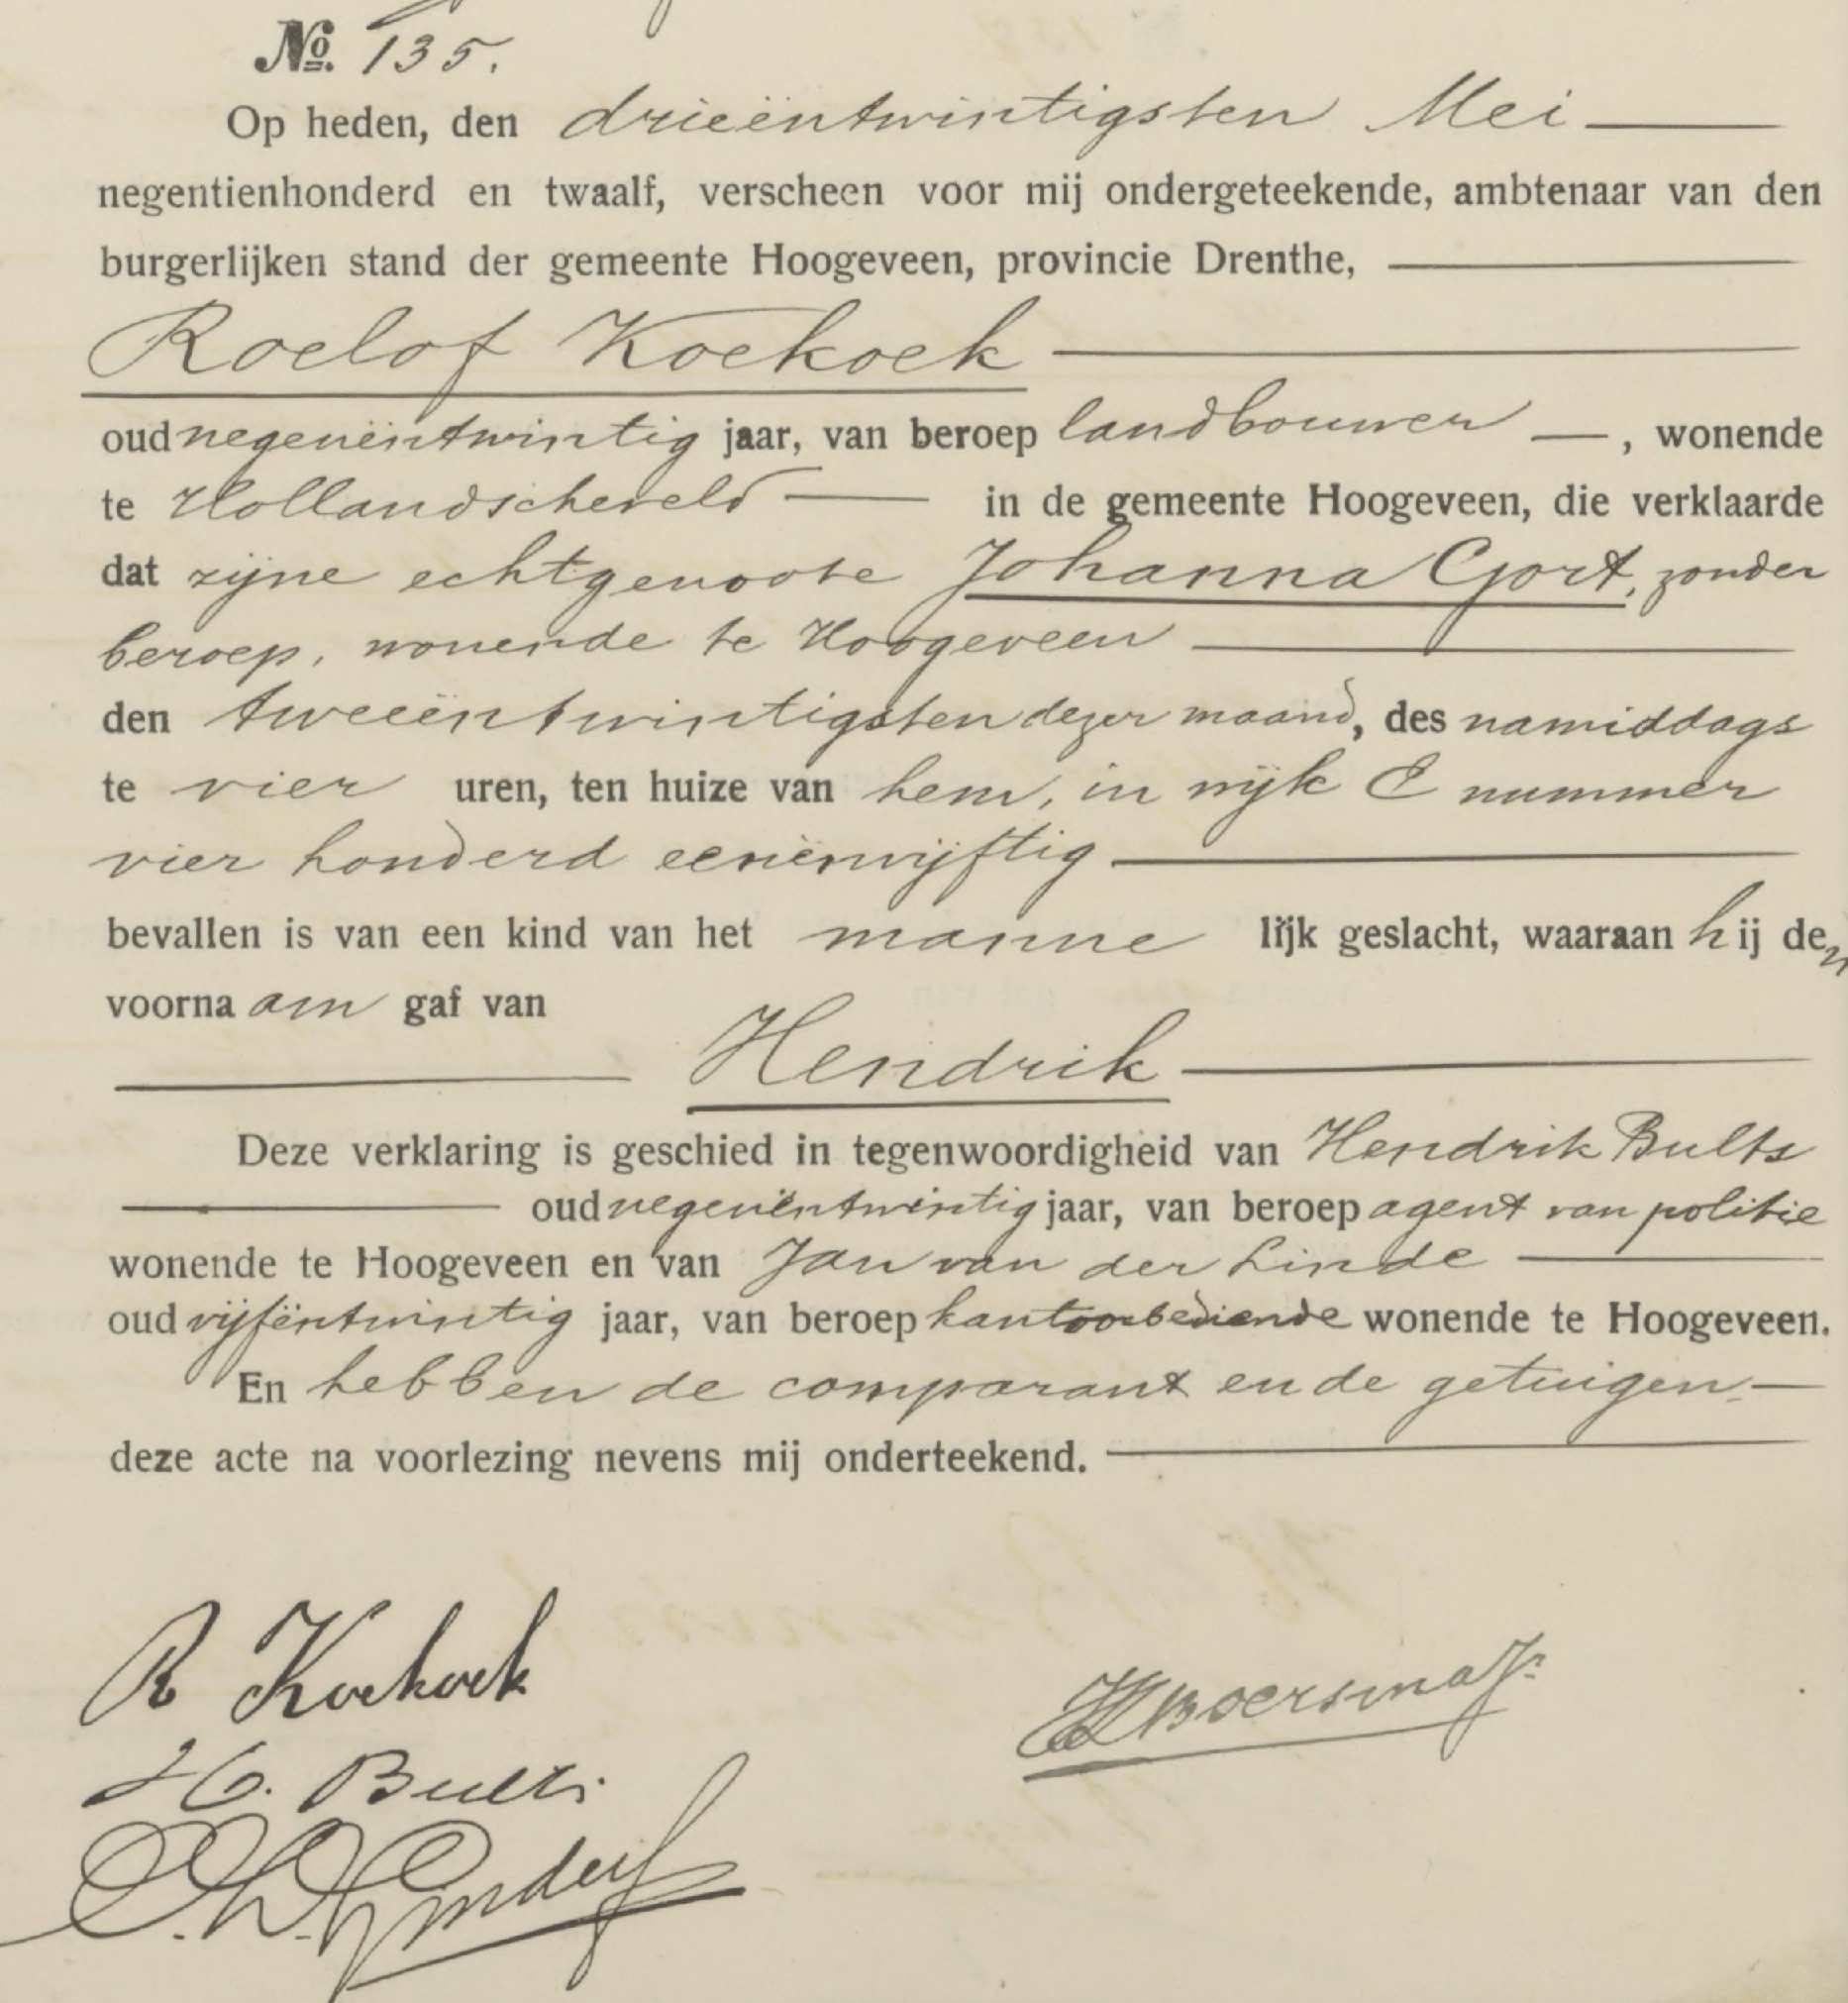 No. 135.
Op heden, den drieëntwintigsten Mei
negentienhonderd en twaalf, verscheen voor mij ondergeteekende, ambtenaar van den
burgerlijken stand der gemeente Hoogeveen, provincie Drenthe,
Roelof Koekoek
oud negenëntwintig jaar, van beroep landbouwer, wonende
te Hollandscheveld in de gemeente Hoogeveen, die verklaarde
dat zijne echtgenoote Johanna Gort, zonder
beroep, wonende te Hoogeveen
den tweeëntwintigsten dezer maand, des namiddags
te vier uren, ten huize van hem, in wijk E nummer
vier honderd eenënvijftig
bevallen is van een kind van het mannelijk geslacht, waaraan hij den
voornaam gaf van
Hendrik
Deze verklaring is geschied in tegenwoordigheid van Hendrik Bults
oud negenëntwintig jaar, van beroep agent van politie
wonende te Hoogeveen en van Jan van der Linde
oud vijfëntwintig jaar, van beroep kantoorbediende wonende te Hoogeveen.
En hebben de comparant en de getuigen
deze acte na voorlezing nevens mij onderteekend.
R Koekoek
Boersma Jr
H. Bults